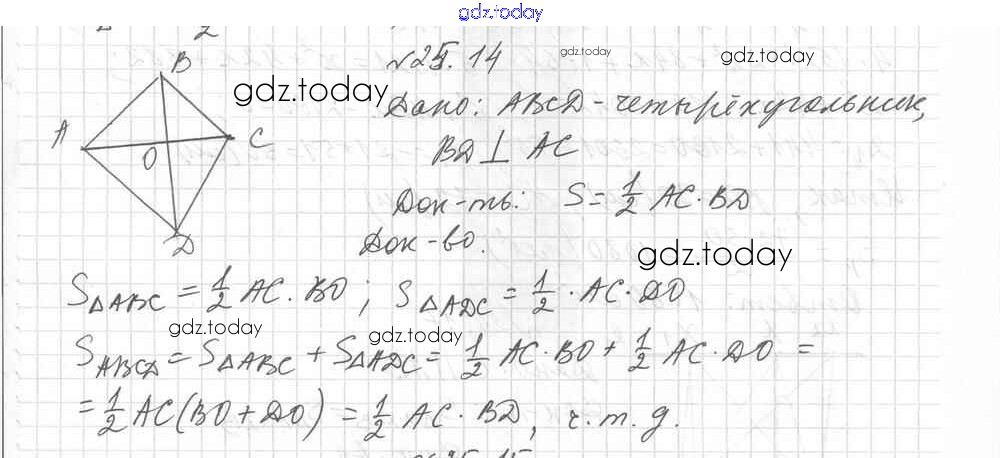 gdz.today
№25.14
gdz.today
gdz.today
B
gdz.today
Дано: ABCD - четырёхугольник,
A
O
C
BD ⊥ AC
Док-ть: S = 1/2 AC · BD
D
Док-во.
gdz.today
S△ABC = 1/2 AC · BO ; S△ADC = 1/2 · AC · DO
gdz.today
gdz.today
SABCD = S△ABC + S△ADC = 1/2 AC · BO + 1/2 AC · DO =
= 1/2 AC (BO + DO) = 1/2 AC · BD, ч.т.д.